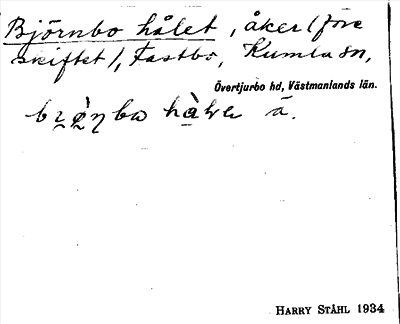 Björnbo hålet, åker (före
skiftet), Fastbo, Kumla sn,
Övertjurbo hd, Västmanlands län.
HARRY STÅHL 1934